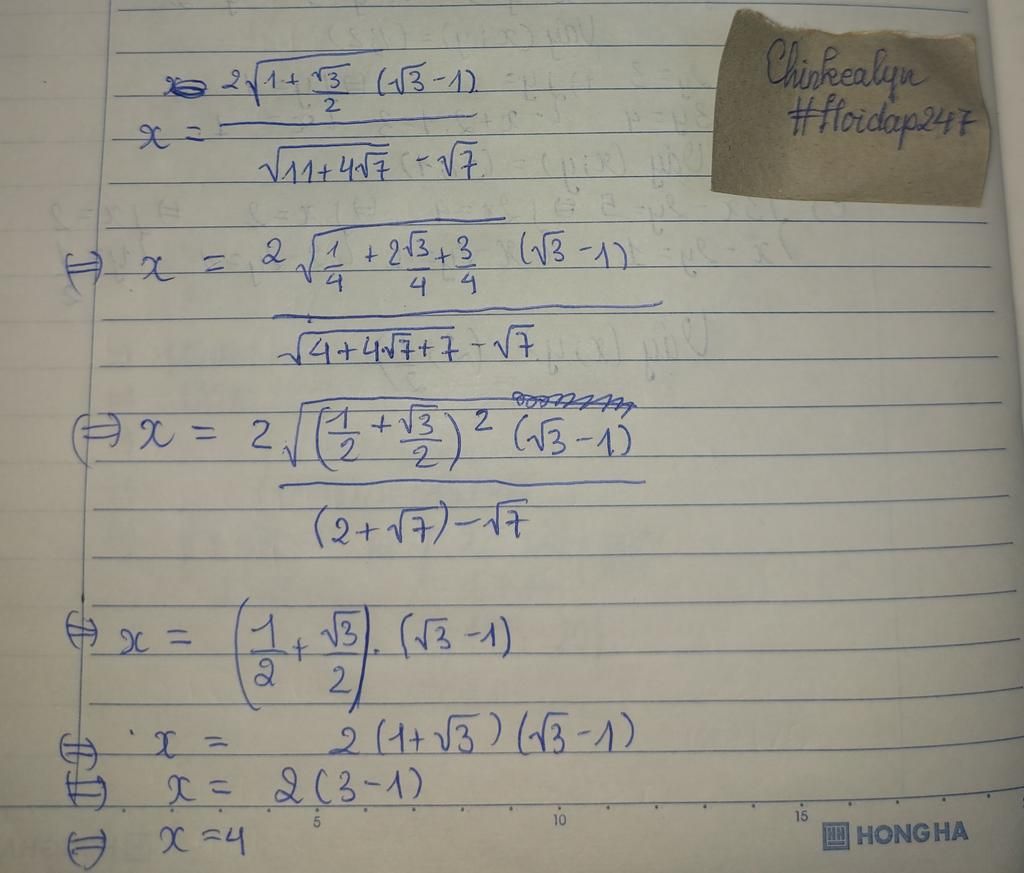 Chinkealyn
#Hoidap247
x = 2√(1 + √3/2) (√3 - 1) / (√(11 + 4√7) - √7)
⇔ x = 2√(1/4 + 2√3/4 + 3/4) (√3 - 1) / (√(4 + 4√7 + 7) - √7)
⇔ x = 2√((1/2 + √3/2)² (√3 - 1)) / ((2 + √7) - √7)
⇔ x = (1/2 + √3/2) . (√3 - 1)
⇔ x = 2(1 + √3)(√3 - 1)
⇔ x = 2(3 - 1)
⇔ x = 4
5 10 15
HONG HA